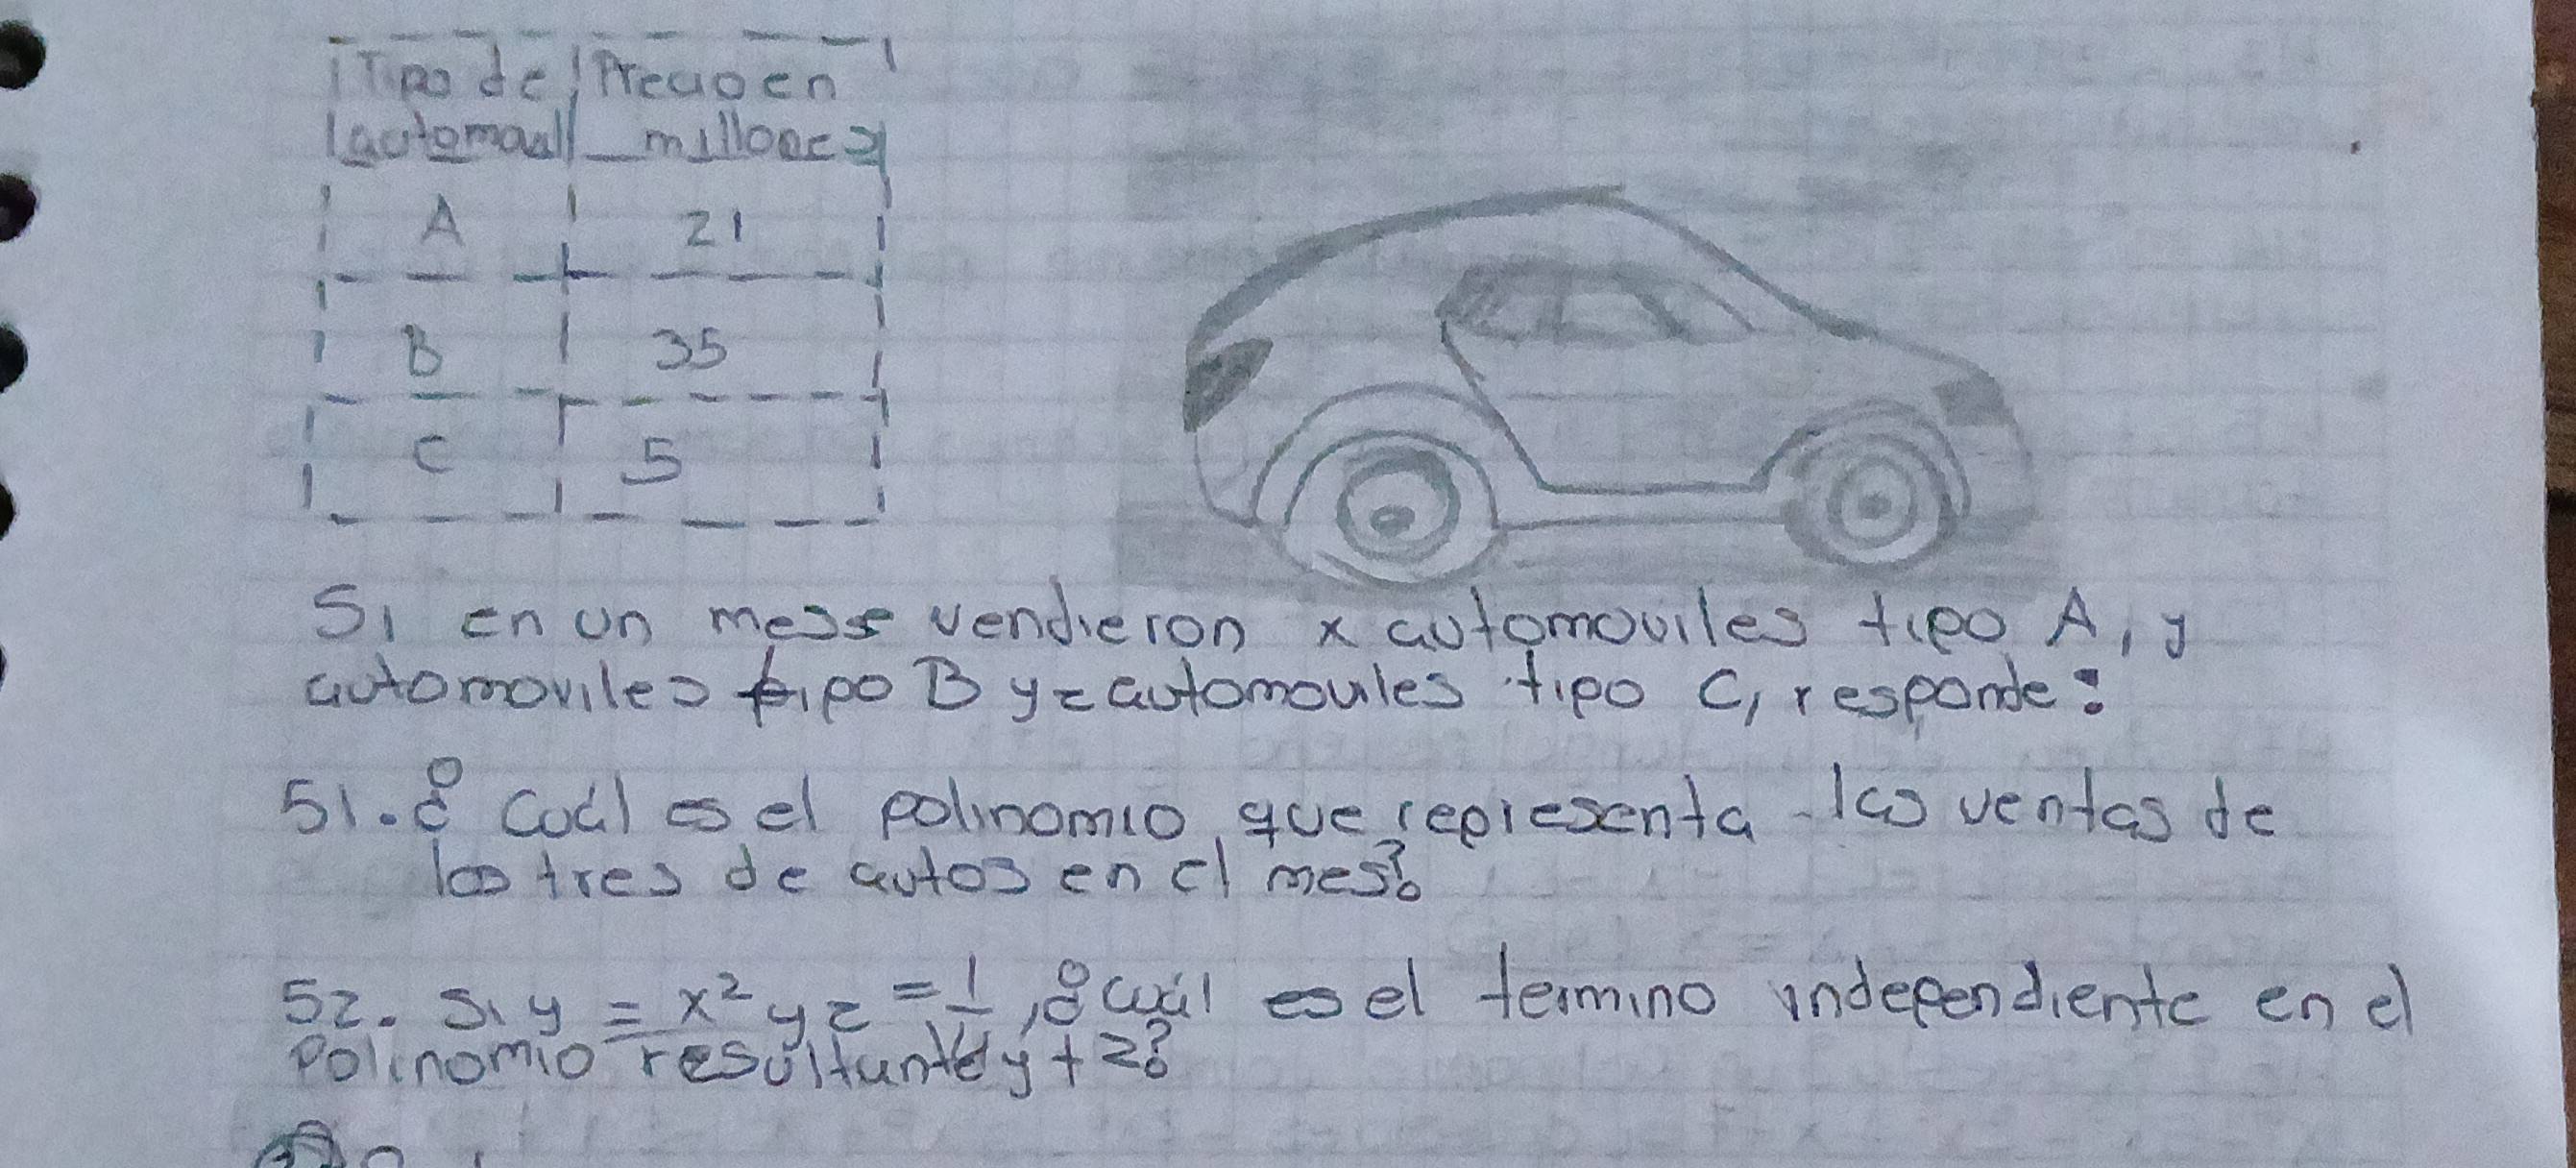 Tipo de Precio en
automovil millones
A 21
B 35
C 5
Si en un mes se vendieron x automoviles tipo A, y
automoviles tipo B y z automoviles tipo C, responde:
51. ¿Cuál es el polinomio que representa las ventas de
los tres de autos en el mes?
52. Si y = x² y z = 1/4, ¿cuál es el termino independiente en el
polinomio resultante y + z?